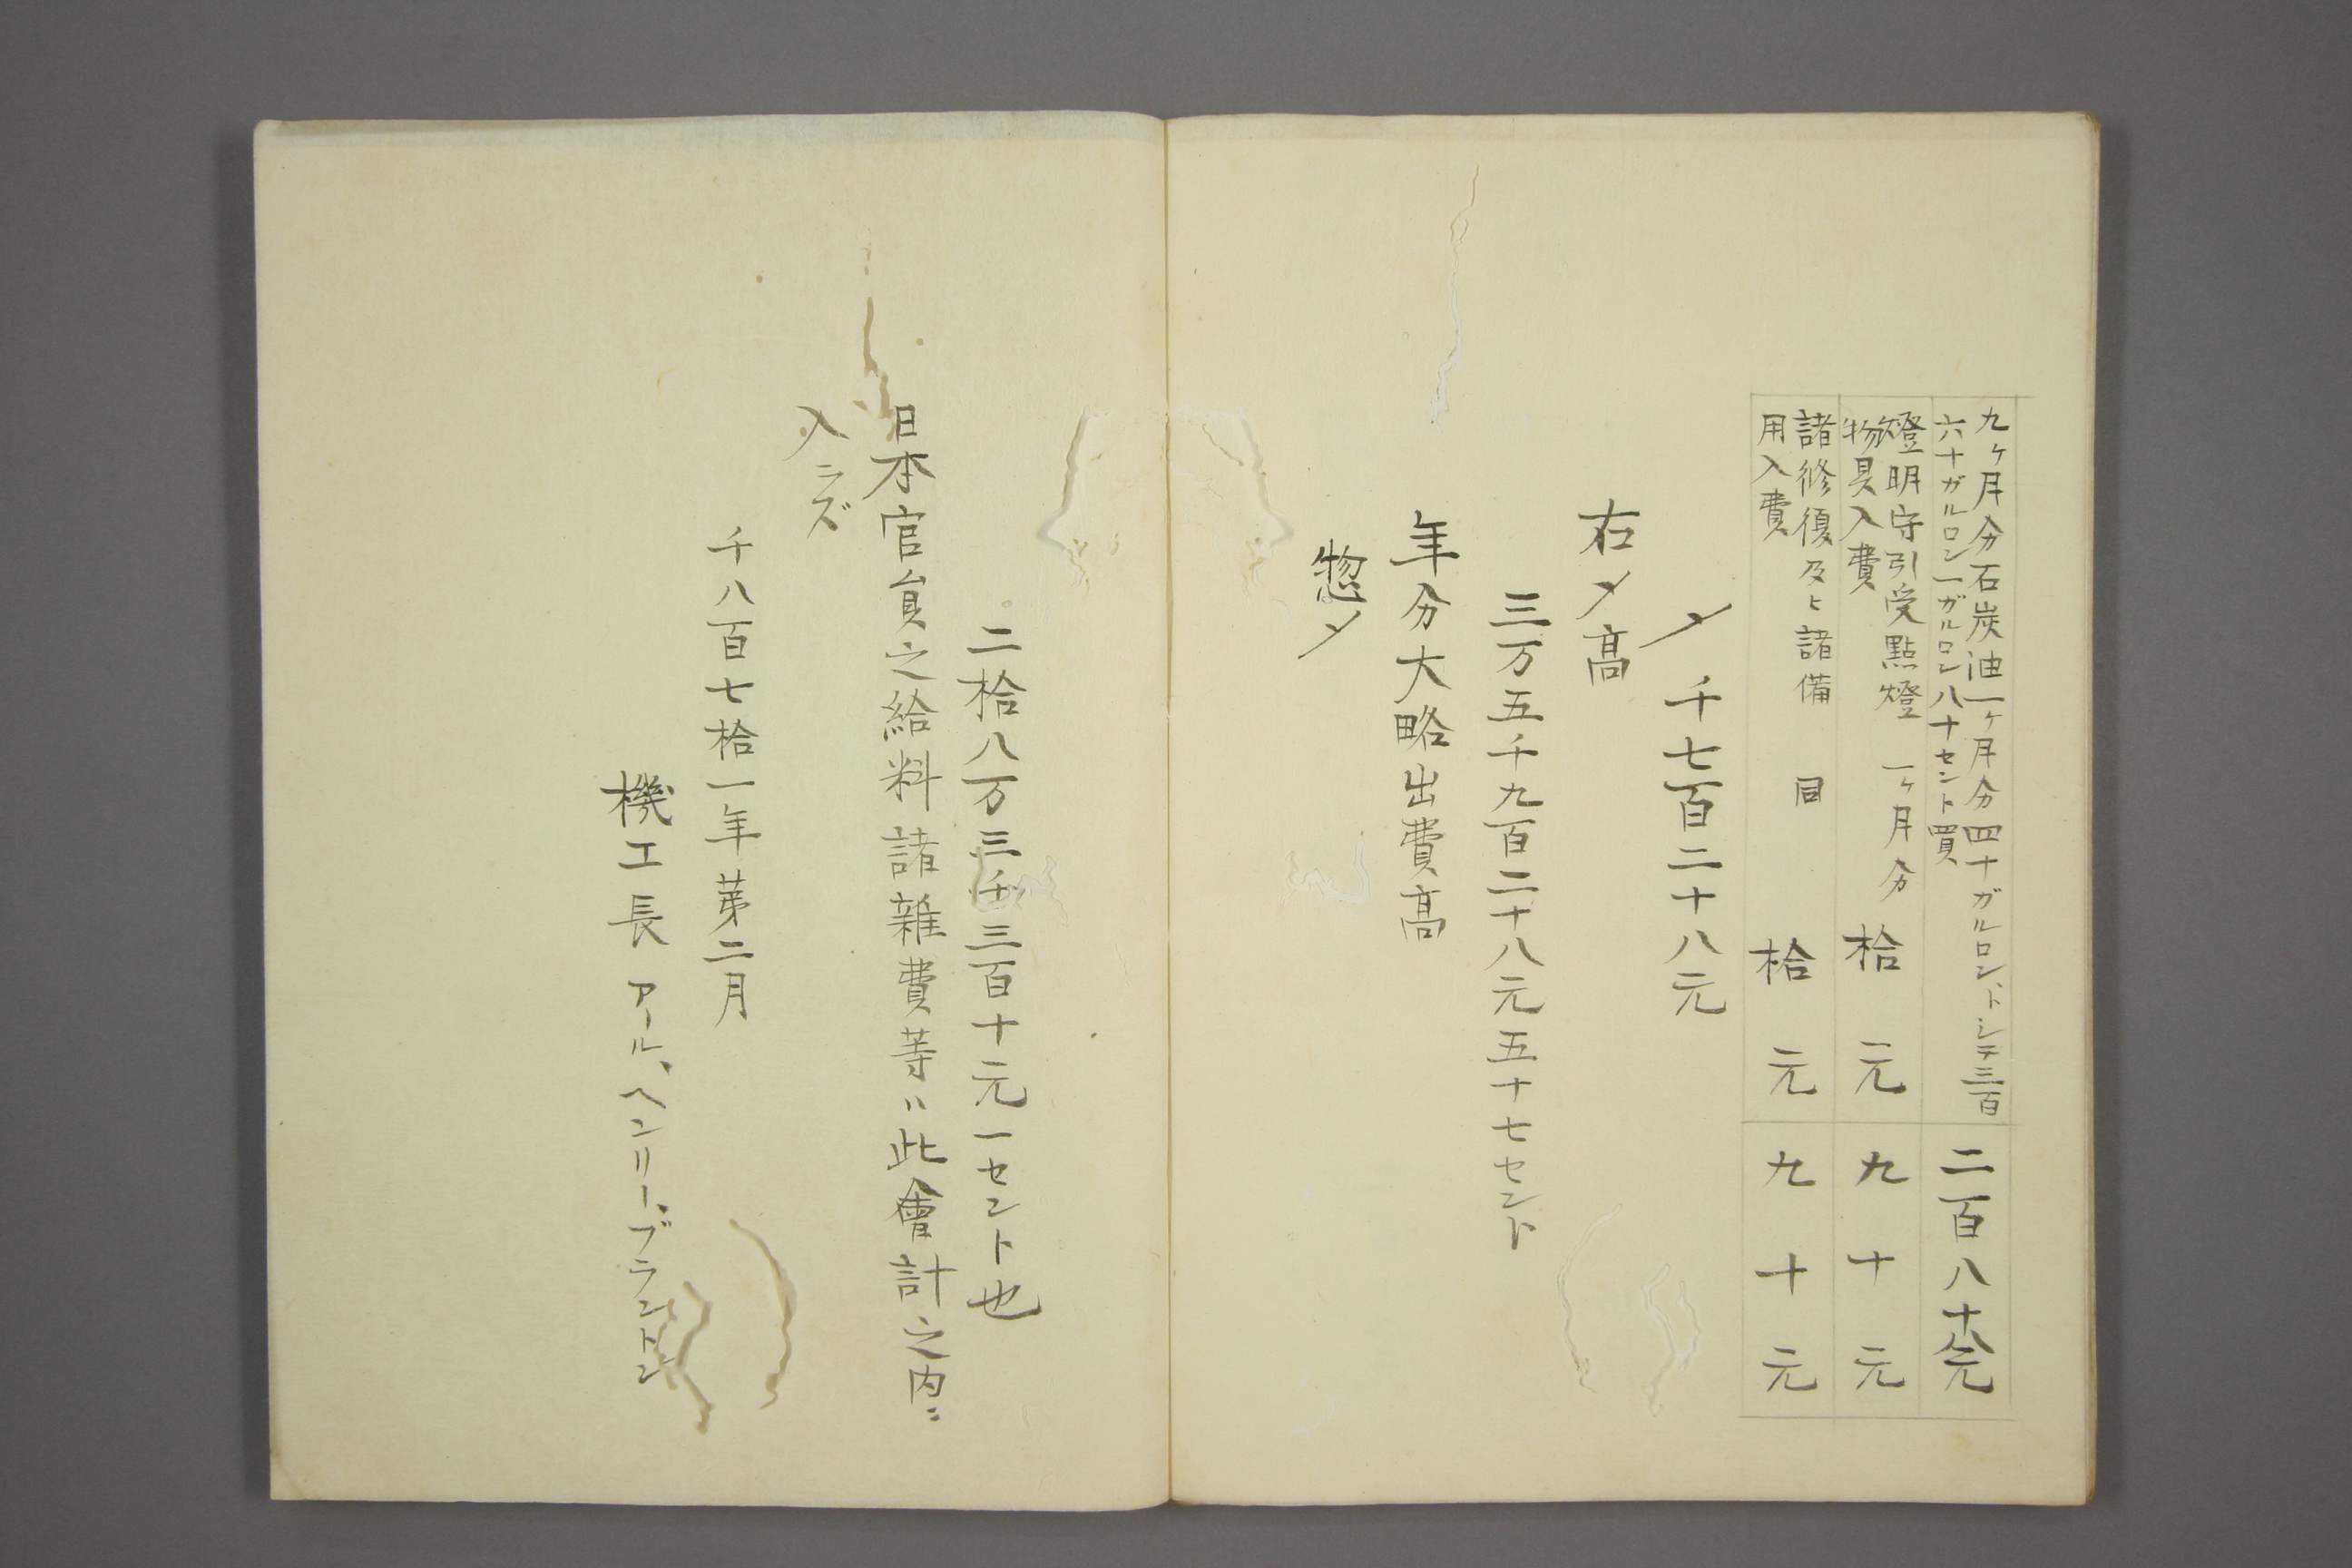 九ヶ月分石炭油一ヶ月分四十ガルロントシテ三百
六十ガルロン一ガルロン八十セント買
二百八十八元
燈明守引受點燈 一ヶ月分
物具入費
拾元
九十元
諸修復及ヒ諸備 同
用入費
拾元
九十元
〆 千七百二十八元
右〆高
三万五千九百二十八元五十七セント
年分大略出費高
惣〆
二拾八万三千三百十元一セント也
日本官員之給料諸雜費等ハ此會計之内ニ
入ラズ
千八百七拾一年第二月
機工長 アール、ヘンリー、ブラントン